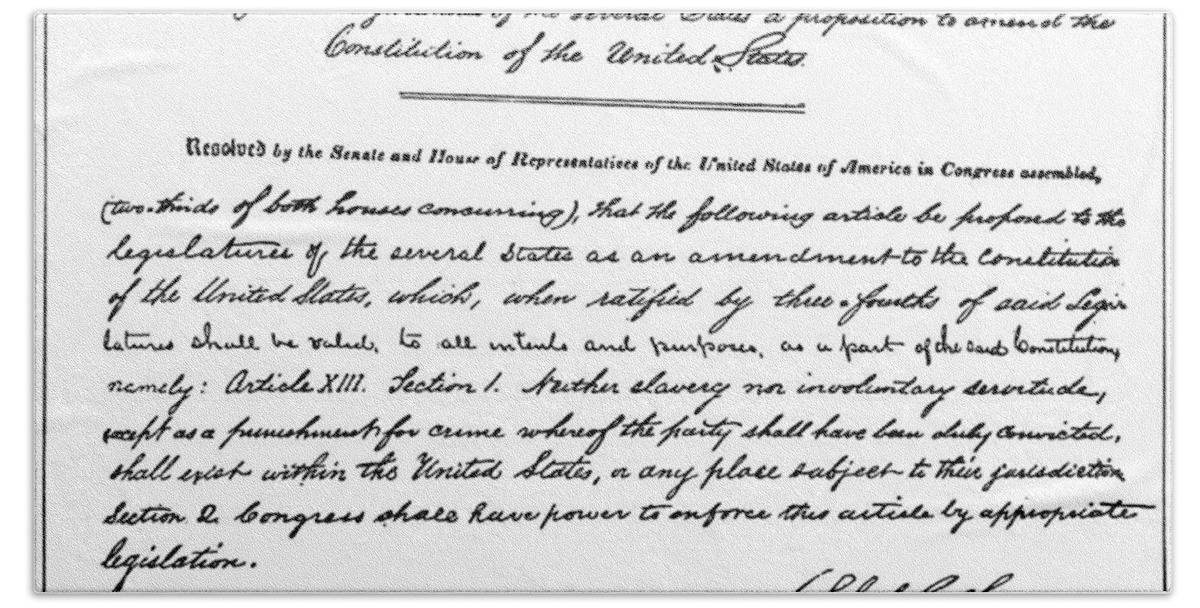 of the several States a proposition to amend the
Constitution of the United States.
Resolved by the Senate and House of Representatives of the United States of America in Congress assembled,
(two-thirds of both houses concurring), that the following article be proposed to the
legislatures of the several States as an amendment to the Constitution
of the United States, which, when ratified by three-fourths of said Legis-
latures shall be valid, to all intents and purposes, as a part of the said Constitution,
namely: Article XIII. Section 1. Neither slavery nor involuntary servitude,
except as a punishment for crime whereof the party shall have been duly convicted,
shall exist within the United States, or any place subject to their jurisdiction.
Section 2. Congress shall have power to enforce this article by appropriate
legislation.